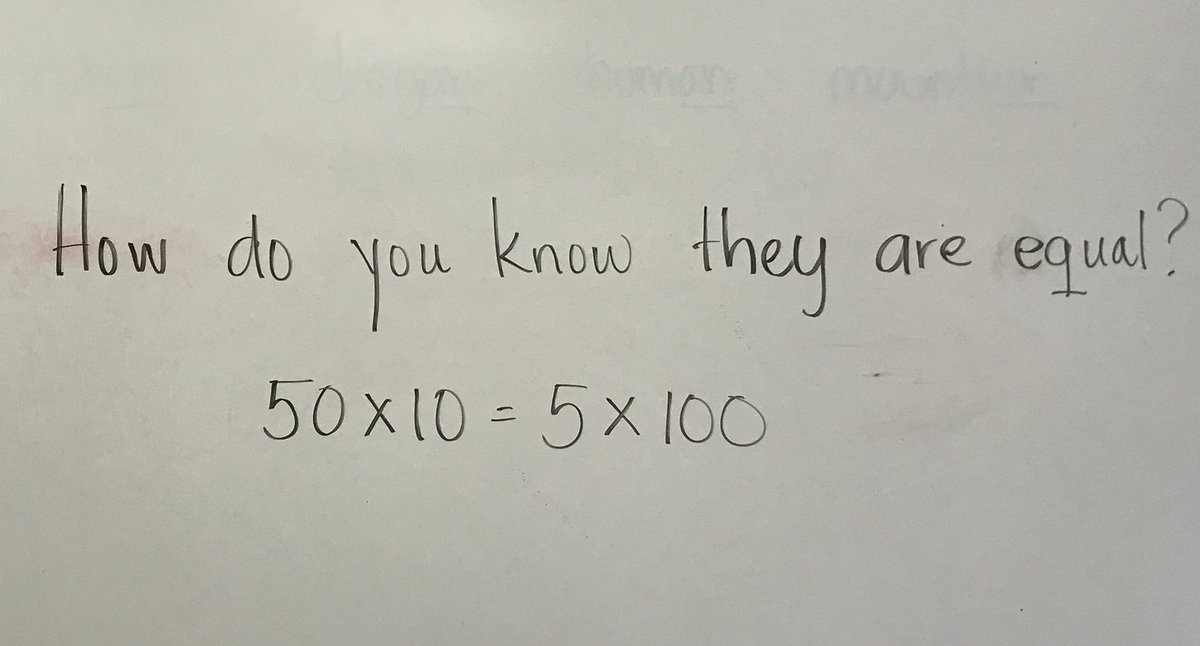 How do you know they are equal?
50 x 10 = 5 x 100